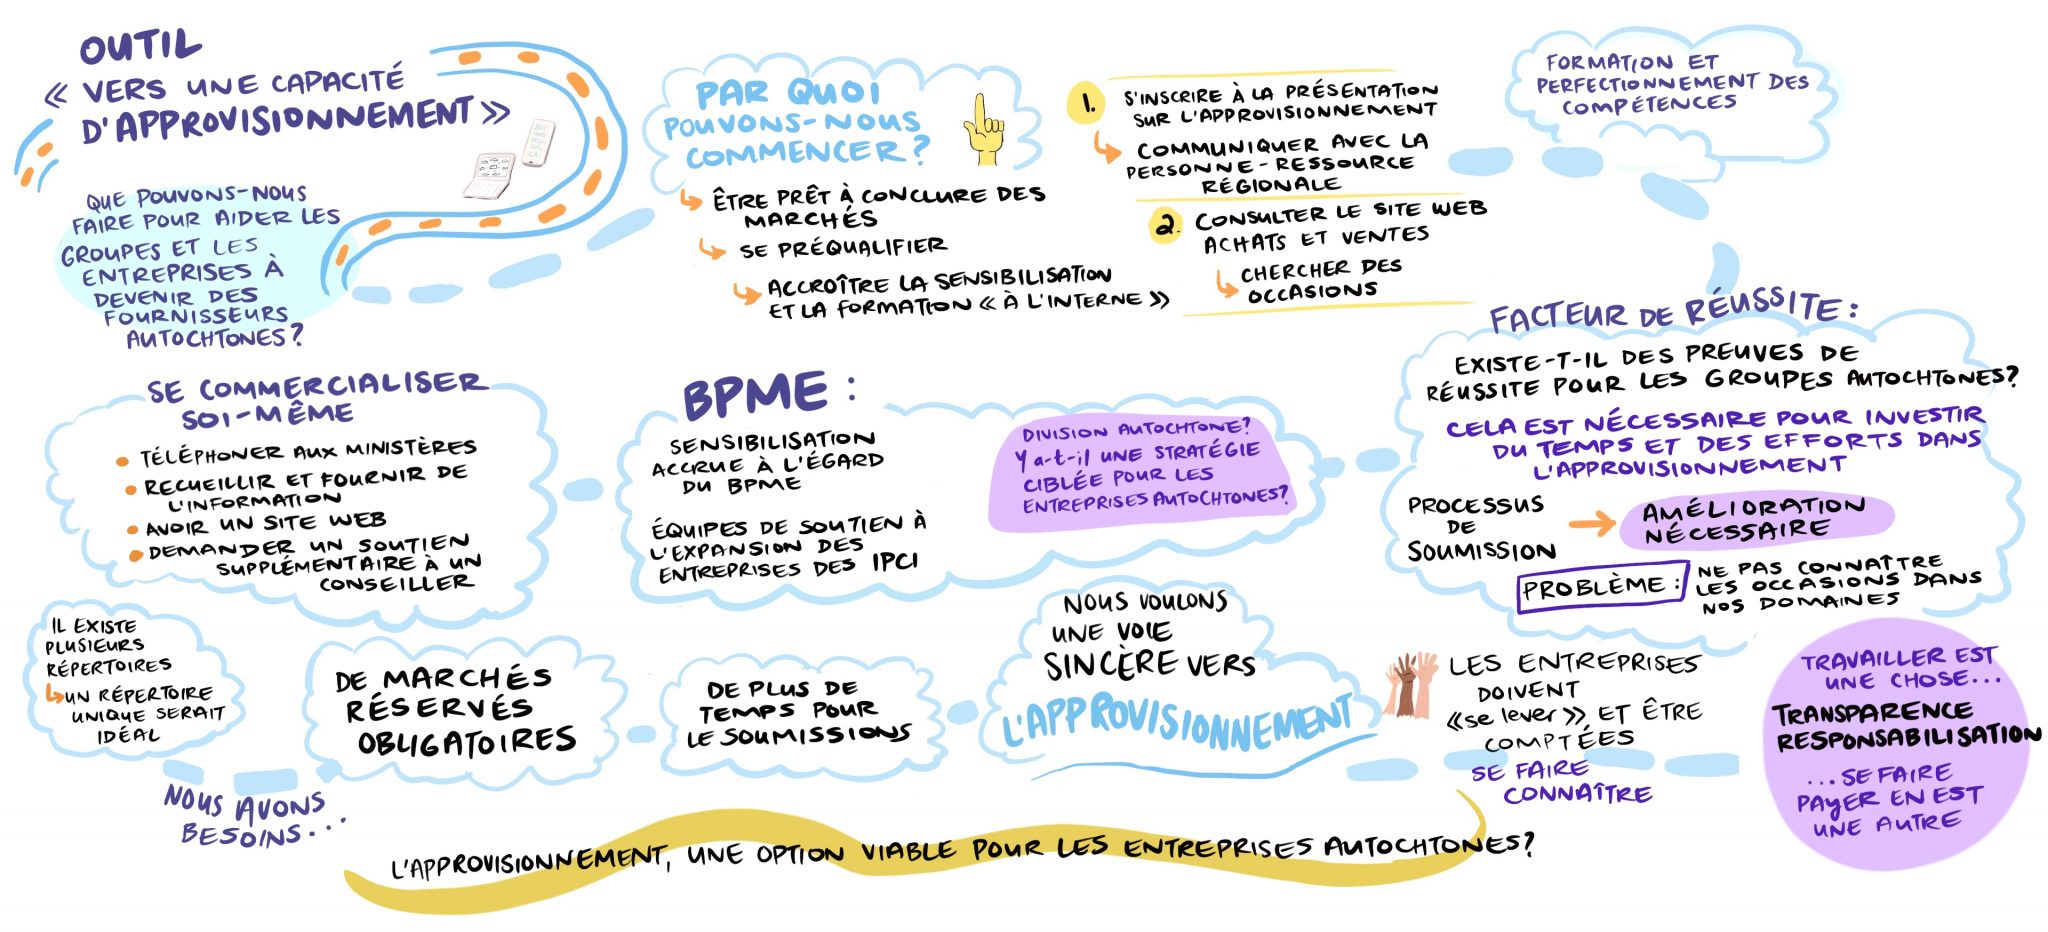 OUTIL
« VERS UNE CAPACITÉ
D'APPROVISIONNEMENT »
QUE POUVONS-NOUS
FAIRE POUR AIDER LES
GROUPES ET LES
ENTREPRISES À
DEVENIR DES
FOURNISSEURS
AUTOCHTONES?
PAR QUOI
POUVONS-NOUS
COMMENCER?
ÊTRE PRÊT À CONCLURE DES
MARCHÉS
SE PRÉQUALIFIER
ACCROÎTRE LA SENSIBILISATION
ET LA FORMATION « À L'INTERNE »
1. S'INSCRIRE À LA PRÉSENTATION
SUR L'APPROVISIONNEMENT
COMMUNIQUER AVEC LA
PERSONNE-RESSOURCE
RÉGIONALE
2. CONSULTER LE SITE WEB
ACHATS ET VENTES
CHERCHER DES
OCCASIONS
FORMATION ET
PERFECTIONNEMENT DES
COMPÉTENCES
FACTEUR DE RÉUSSITE :
EXISTE-T-IL DES PREUVES DE
RÉUSSITE POUR LES GROUPES AUTOCHTONES?
CELA EST NÉCESSAIRE POUR INVESTIR
DU TEMPS ET DES EFFORTS DANS
L'APPROVISIONNEMENT
PROCESSUS
DE
SOUMISSION
AMÉLIORATION
NÉCESSAIRE
PROBLÈME :
NE PAS CONNAÎTRE
LES OCCASIONS DANS
NOS DOMAINES
BPME :
SENSIBILISATION
ACCRUE À L'ÉGARD
DU BPME
ÉQUIPES DE SOUTIEN À
L'EXPANSION DES
ENTREPRISES DES IPCI
DIVISION AUTOCHTONE?
Y a-t-il UNE STRATÉGIE
CIBLÉE POUR LES
ENTREPRISES AUTOCHTONES?
SE COMMERCIALISER
SOI-MÊME
• TÉLÉPHONER AUX MINISTÈRES
• RECUEILLIR ET FOURNIR DE
L'INFORMATION
• AVOIR UN SITE WEB
• DEMANDER UN SOUTIEN
SUPPLÉMENTAIRE À UN
CONSEILLER
IL EXISTE
PLUSIEURS
RÉPERTOIRES
UN RÉPERTOIRE
UNIQUE SERAIT
IDÉAL
NOUS AVONS
BESOINS...
DE MARCHÉS
RÉSERVÉS
OBLIGATOIRES
DE PLUS DE
TEMPS POUR
LE SOUMISSIONS
NOUS VOULONS
UNE VOIE
SINCÈRE VERS
L'APPROVISIONNEMENT
LES ENTREPRISES
DOIVENT
«se lever» ET ÊTRE
COMPTÉES
SE FAIRE
CONNAÎTRE
TRAVAILLER EST
UNE CHOSE...
TRANSPARENCE
RESPONSABILISATION
...SE FAIRE
PAYER EN EST
UNE AUTRE
L'APPROVISIONNEMENT, UNE OPTION VIABLE POUR LES ENTREPRISES AUTOCHTONES?